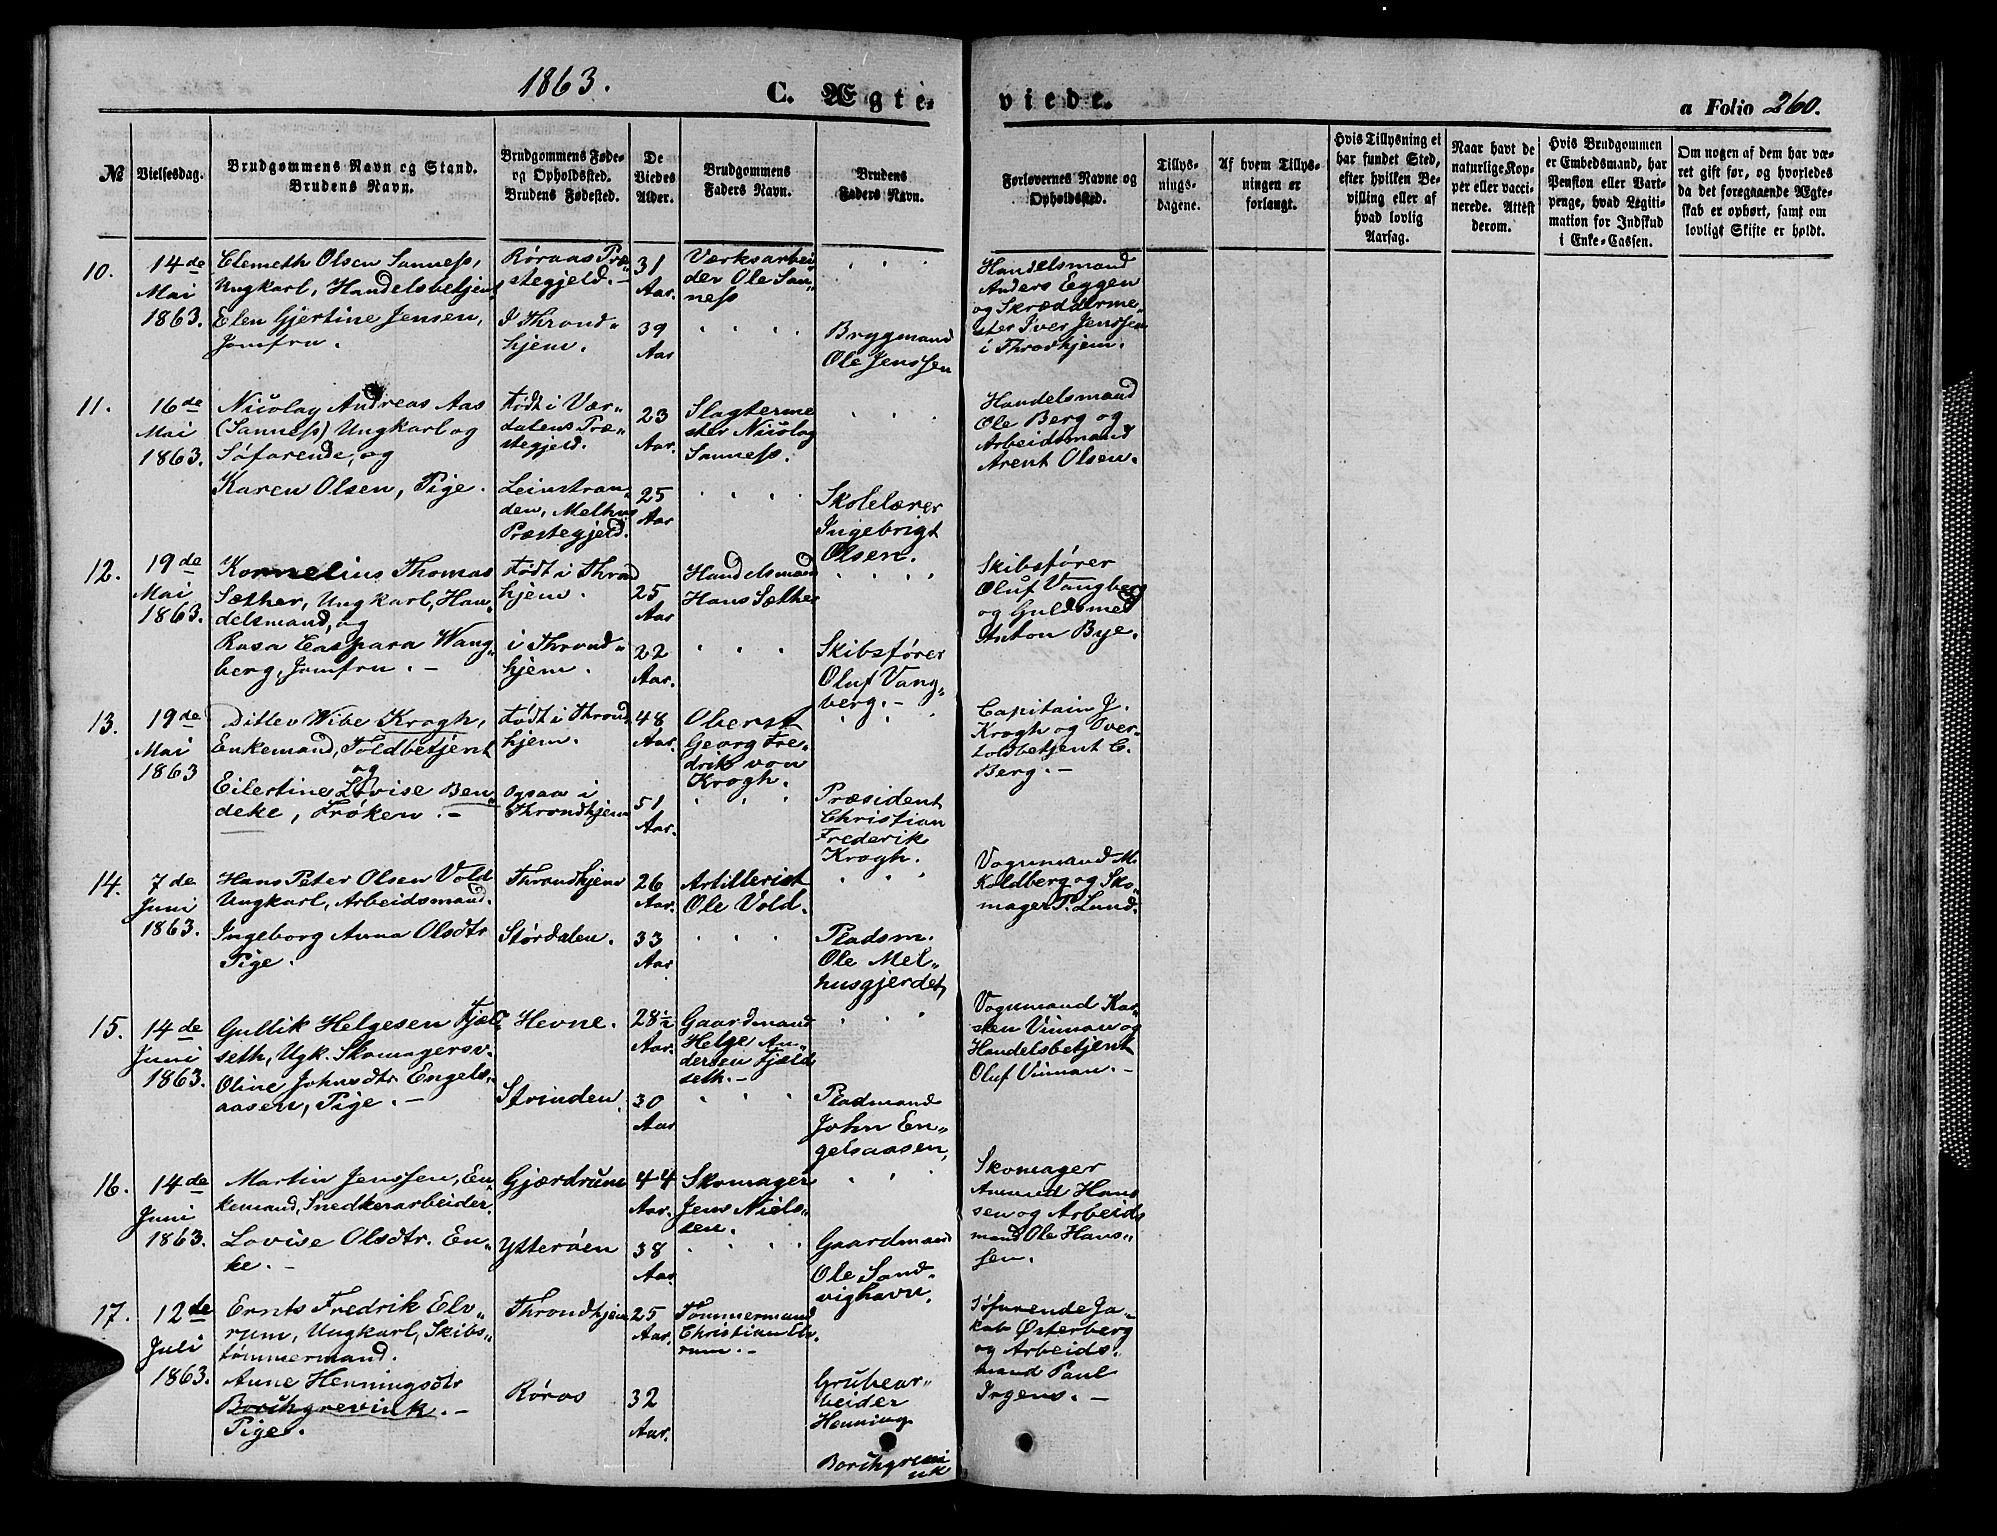 1863.
C. Ægte-
viede.
a Folio 260.
№
Vielsesdag.
Brudgommens Navn og Stand.
Brudens Navn.
Brudgommens Føde-
og Opholdssted.
Brudens Fødested.
De
Viedes
Alder.
Brudgommens
Faders Navn.
Brudens
Faders Navn.
Forlovernes Navne og
Opholdssted.
Tillys-
nings-
dagene.
Af hvem Tillys-
ningen er
forlangt.
Hvis Tillysning ei
har fundet Sted,
efter hvilken Be-
villing eller af
hvad lovlig
Aarsag.
Naar havt de
naturlige Kop-
per eller vacci-
nerede. Attest
derom.
Hvis Brudgommen
er Embedsmand, har
Pension eller Vart-
penge, hvad Legiti-
mation for Indskud
i Enke-Cassen.
Om nogen af dem har væ-
ret gift før, og hvorledes
da det foregaaende Ægte-
skab er ophørt, samt om
lovligt Skifte er holdt.
10.
14de
Mai
1863.
Clemeth Olsen Sanness,
Ungkarl, Handelsbetjent
Elen Gjertine Jensen,
Jomfru.
Røraas Præ-
stegjeld.-
I Thrond-
hjem.
31
Aar.
39
Aar
Værksarbei-
der Ole San-
ness
Brygmand
Ole Jenssen
Handelsmand
Anders Eggen
og Skræddérme-
ster Iver Jenssen
i Throdhjem.
11.
16de
Mai
1863.
Nicolay Andreas Aas
(Sanness) Ungkarl og
Søfarende, og
Karen Olsen, Pige.
Født i Vær-
dalens Præ-
stegjeld.
Leinstran-
den, Melhus
Præstegjeld.
23
Aar.
25
Aar
Slagterme
ster Nicolay
Sanness.
Skolelærer
Ingebrigt
Olsen.
Handelsmand
Ole Berg og
Arbeidsmand
Arent Olsen.
12.
19de
Mai
1863.
Kornelius Thomas
Sæther, Ungkarl, Han-
delsmand, og
Rosa Caspara Wang-
berg, Jomfru. -
Født i Thrond
hjem.
i Thrond-
hjem.
25
Aar
22
Aar.
Handelsmand
Hans Sæther
Skibsfører
Oluf Vang-
berg. -
Skibsfører
Oluf Vangberg
og Guldsmed
Anton Bye.
13.
19de
Mai
1863
Ditlev Wibe Krogh,
Enkemand, Toldbetjent
og
Eilertine Lovise Ben-
deke, Frøken. -
Født i Thrond
hjem.
ogsaa i
Throndhjem
48
Aar.
51
Aar.
Oberst
Georg Fre-
drik von
Krogh.
Præsident
Christian
Frederik
Krogh.
Capitain J.
Krogh og Over-
toldbetjent C.
Berg. -
14.
7de
Juni
1863.
Hans Peter Olsen Vold
Ungkarl, Arbeidsmand.
Ingeborg Anna Olsdtr
Pige.
Throndhjem
Størdalen.
26
Aar.
33
Aar
Artillerist
Ole Vold.
Pladsm.
Ole Mel-
husgjerdet,
Vognmand M.
Koldberg og Sko-
mager P. Lund.
15.
14de
Juni
1863.
Gullik Helgesen Fjæld-
seth, Ugk. Skomagersv.
Oline Johnsdtr Engels-
aasen, Pige. -
Hevne.
Strinden.
28½
Aar.
30
Aar
Gaardmand
Helge An-
dersen Fjæld
seth. -
Pladmand
John En-
gelsaasen,
Vognmand Kar-
sten Vinman og
Handelsbetjent
Oluf Vinman. -
16.
14de
Juni
1863.
Martin Jenssen, En-
kemand, Snedkerarbeider.
Lovise Olsdtr. En-
ke. -
Gjærdrum
Ytterøen
44
Aar.
38
Aar.
Skomager
Jens Niels-
sen.
Gaardmand
Ole Sand-
vighavn.
Skomager
Amund Hans
sen og Arbeids
mand Ole Hans-
sen.
17.
12de
Juli
1863.
Ernts Fredrik Elv-
rum, Ungkarl, Skibs-
tømmermand.
Anne Henningsdtr
Borchgrevink. -
Pige.
Throndhjem
Røros
25
Aar.
32
Aar.
Tømmermand
Christian Elv-
rum. -
Grubear-
beider
Henning
Borchgrevi
nk
Søfarende Ja-
kob Østerberg
og Arbeids-
mand Paul
Irgens. -